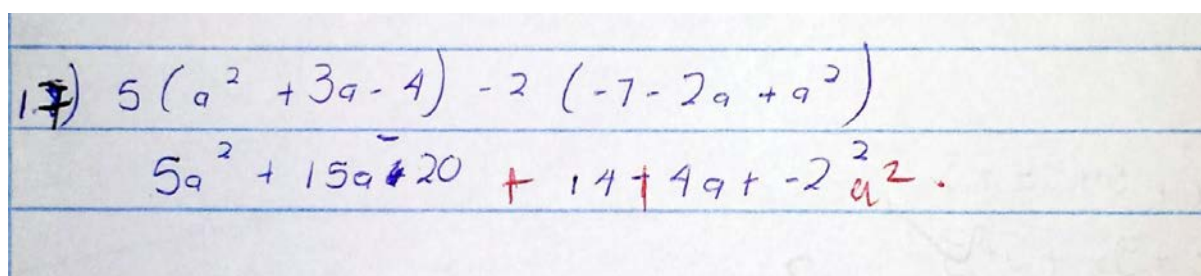 1.7) 5(a² + 3a - 4) - 2(-7 - 2a + a²)
5a² + 15a - 20 + 14 + 4a + -2² a².